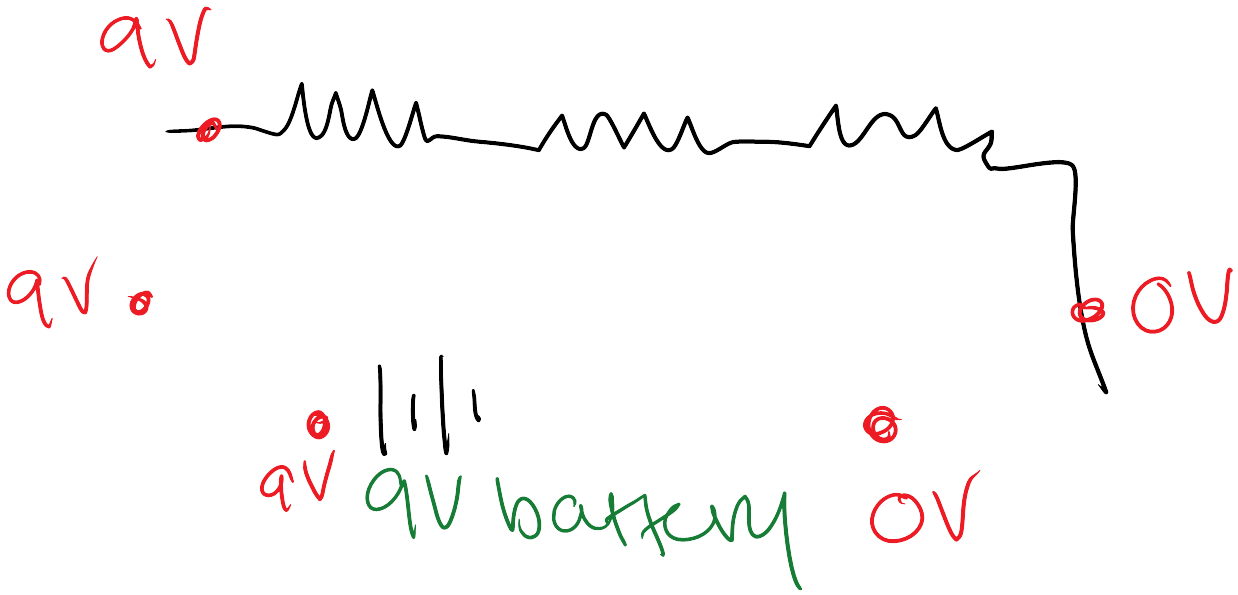 9V
9V
0V
9V
9V battery
0V